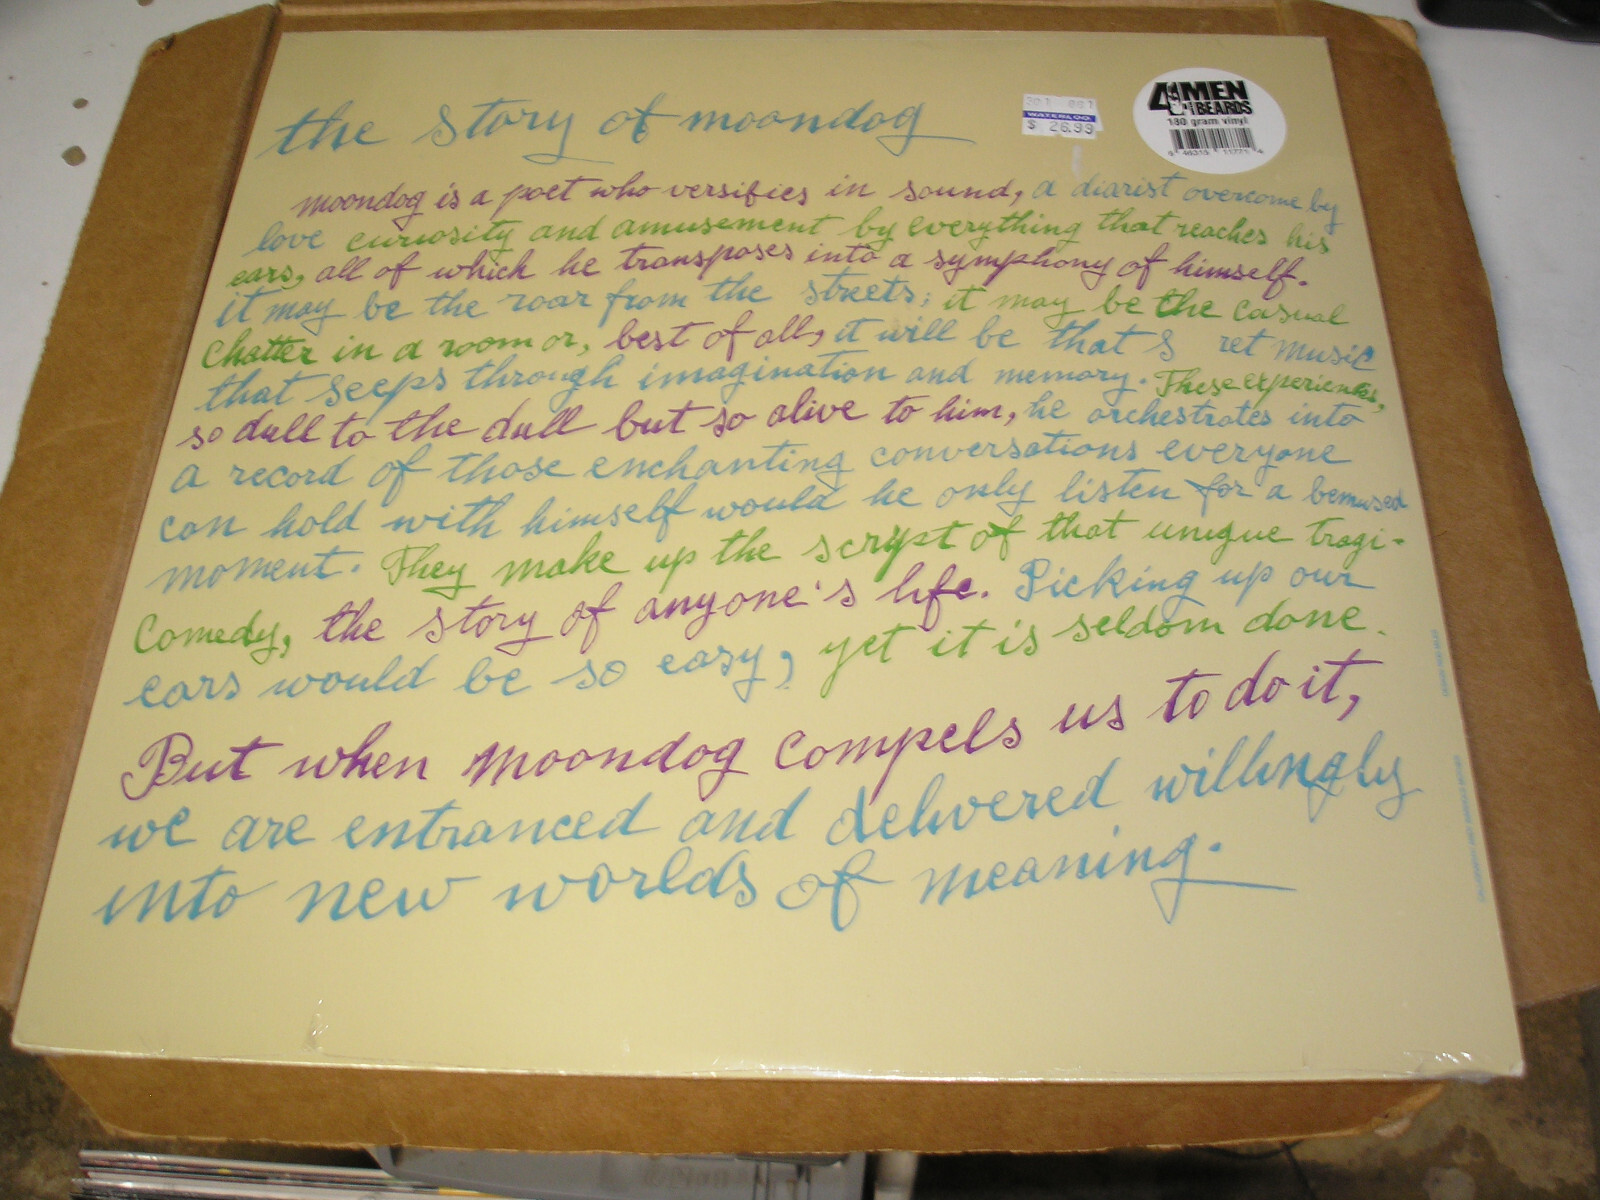 the story of moondog
moondog is a poet who versifies in sound, a diarist overcome by
love curiosity and amusement by everything that reaches his
ears, all of which he transposes into a symphony of himself.
it may be the roar from the streets; it may be the casual
chatter in a room or, best of all, it will be that s ret music
that seeps through imagination and memory. These experiences,
so dull to the dull but so alive to him, he orchestrates into
a record of those enchanting conversations everyone
can hold with himself would he only listen for a bemused
moment. They make up the script of that unique tragi-
Comedy, the story of anyone's life. Picking up our
ears would be so easy, yet it is seldom done.
But when moondog compels us to do it,
we are entranced and delivered willingly
into new worlds of meaning.
WATERLOO
$ 26.99
4 MEN
BEARDS
180 gram vinyl